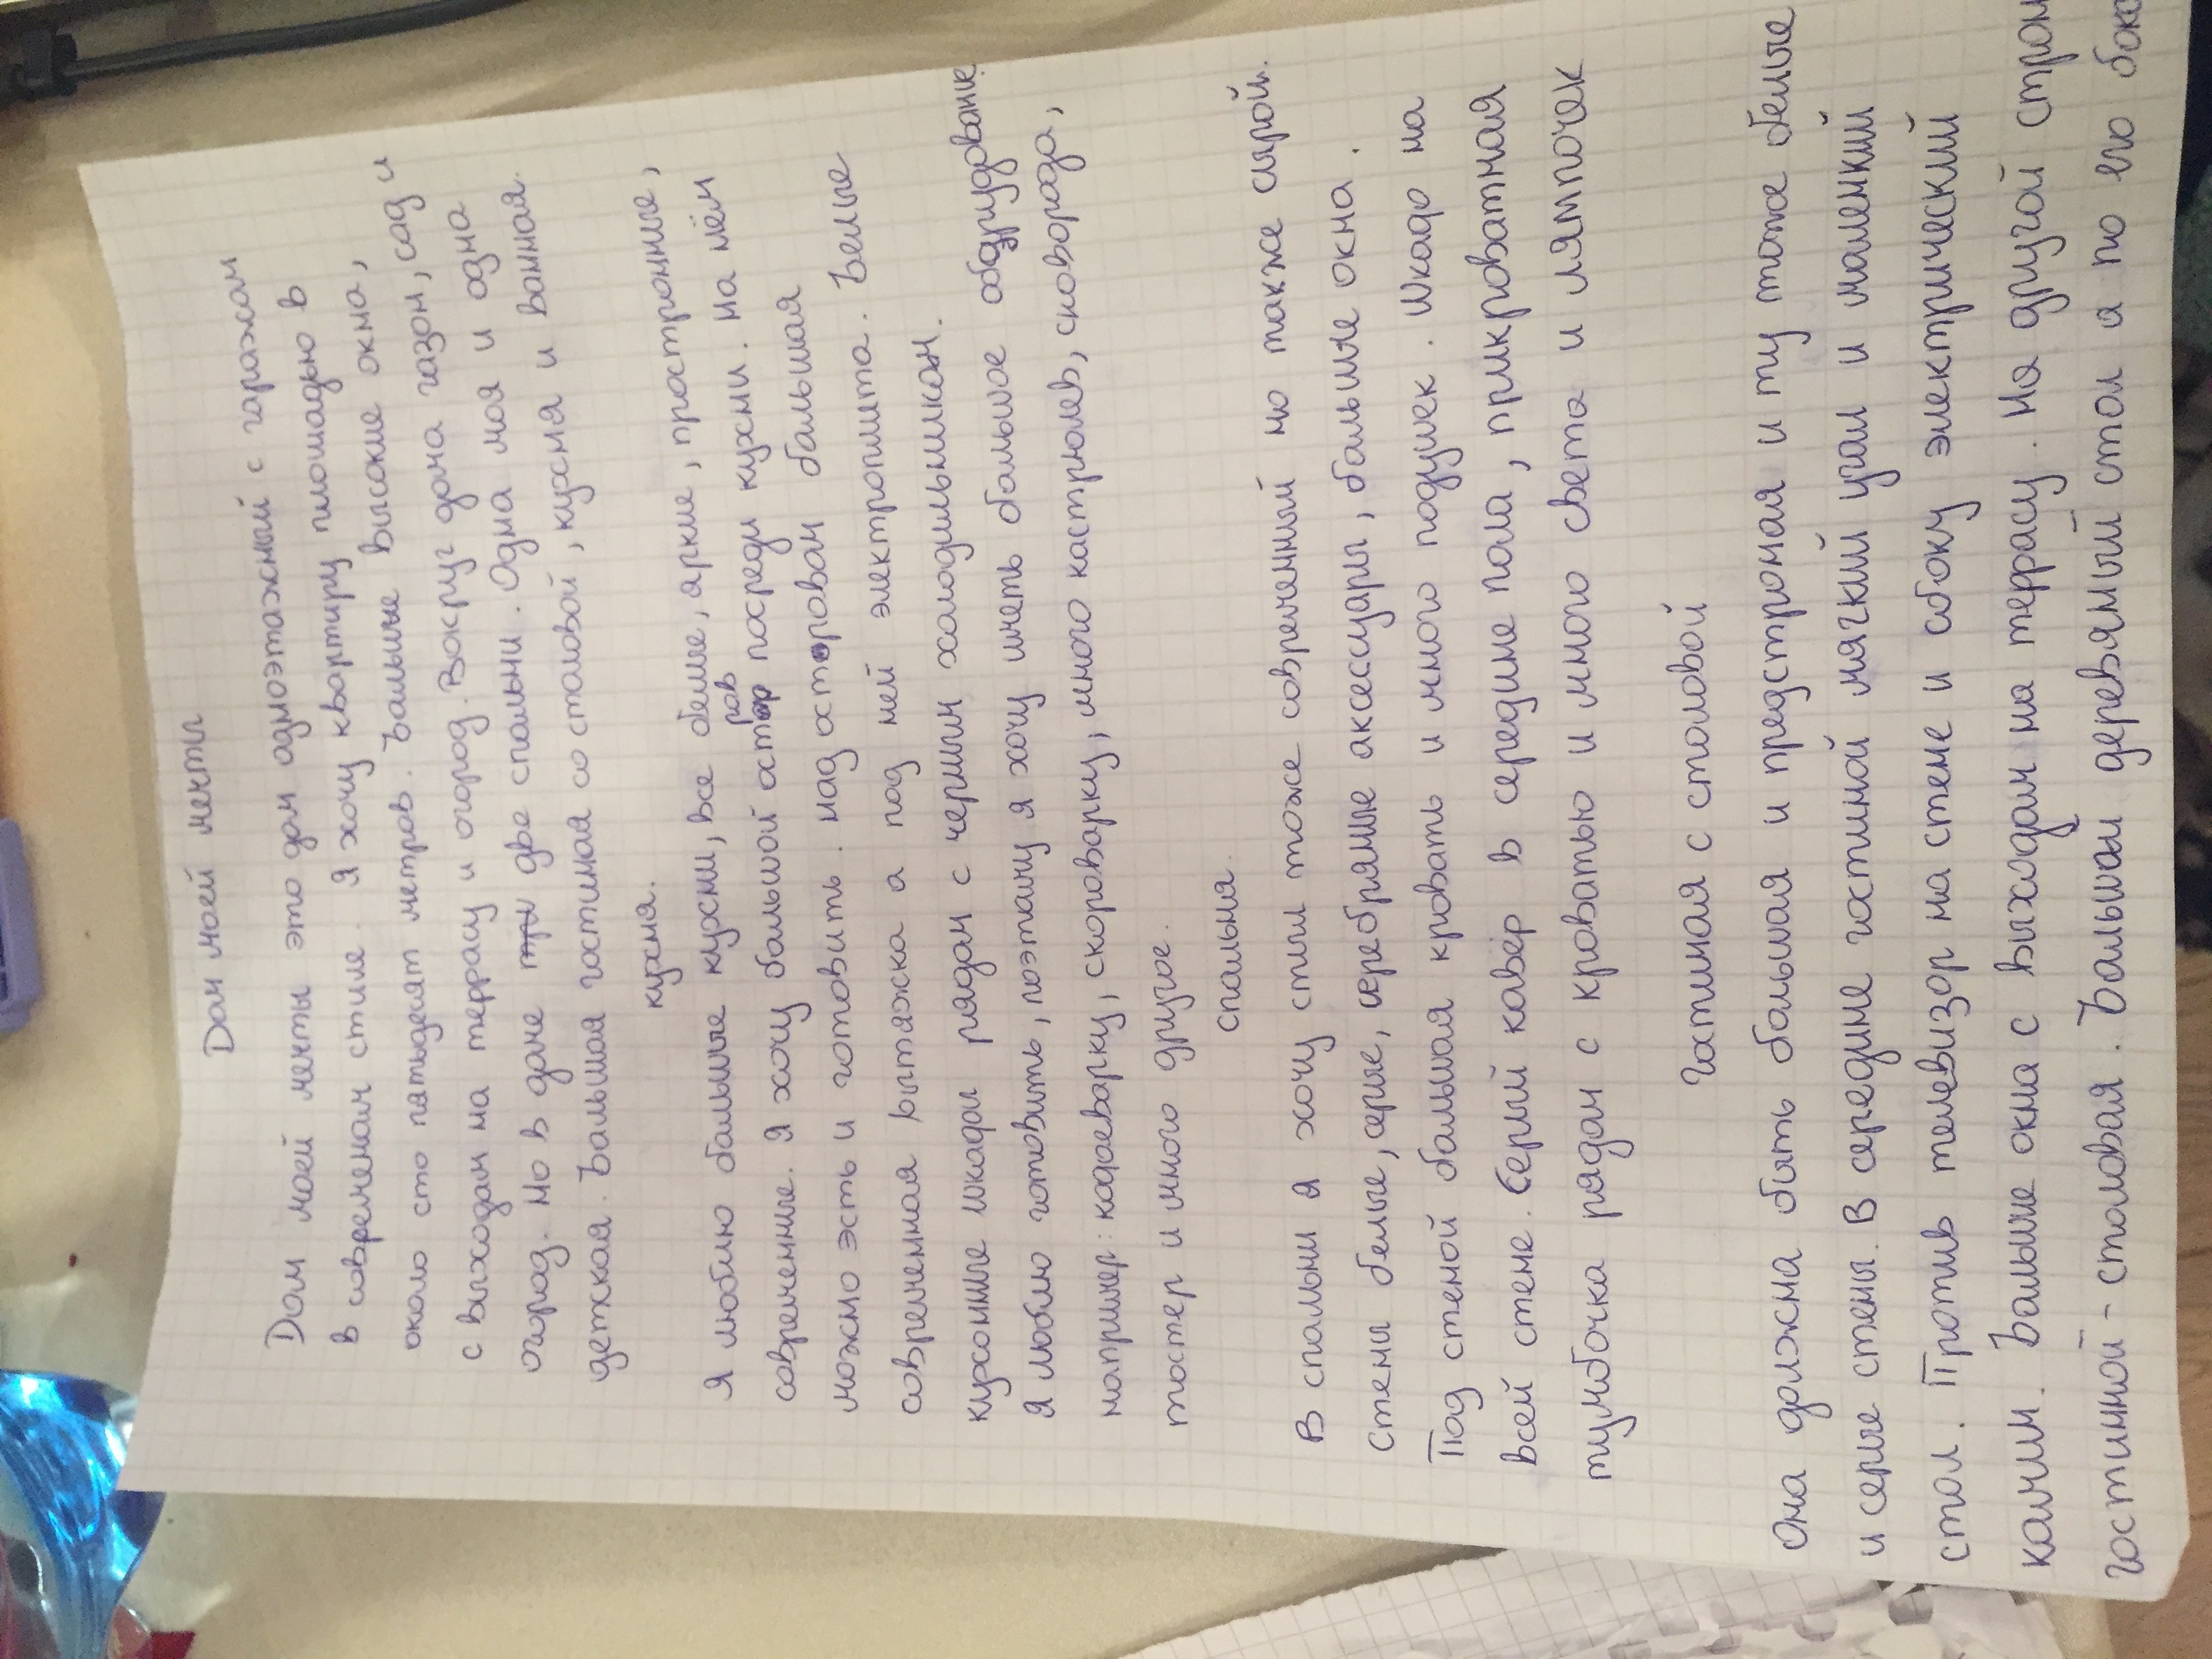 Дом моей мечты
Дом моей мечты это дом одноэтажный с гаражом
в современом стиле. Я хочу квартиру площадью в
около сто патьдесят метров. Большие высокие окна,
с выходом на террасу и огород. Вокруг дома газон, сад и
огород. Но в доме три две спальни. Одна моя и одна
детская. Большая гостиная со столовой, кухня и ванная.
кухня.
Я люблю большые кухни, все белые, яркие, просторнные,
современные. Я хочу большой остров посреди кухни. На нём
можно эсть и готовить. Над островом большая
современная вытяжка а под ней электроплита. Белые
кухонные шкафы рядом с черным холодильником.
Я люблю готовить, поэтаму я хочу иметь большое оборудование
например: кофеварку, скороварку, много кастрюлев, сковорода,
тостер и много другое.
спальня.
В спальни я хочу стил тоже современный но также сырой.
Стены белые, серые, серебряные аксессуары, большие окна.
Под стеной большая кровать и много подушек. Шкафр на
всей стене. Серый кавёр в середине пола, прикроватная
тумбочка рядом с кроватью и много света и лямпочек
Гостиная с столовой
Она должна быть большая и предстроная и ту тоже белые
и серые стены. В середине гостиной мягкий угол и маленкий
стол. Против телевизор на стене и сбоку электрический
камин. Больше окна с выходом на террасу. На другой строн
гостинной - столовая. Большом деревяный стол а по его бока